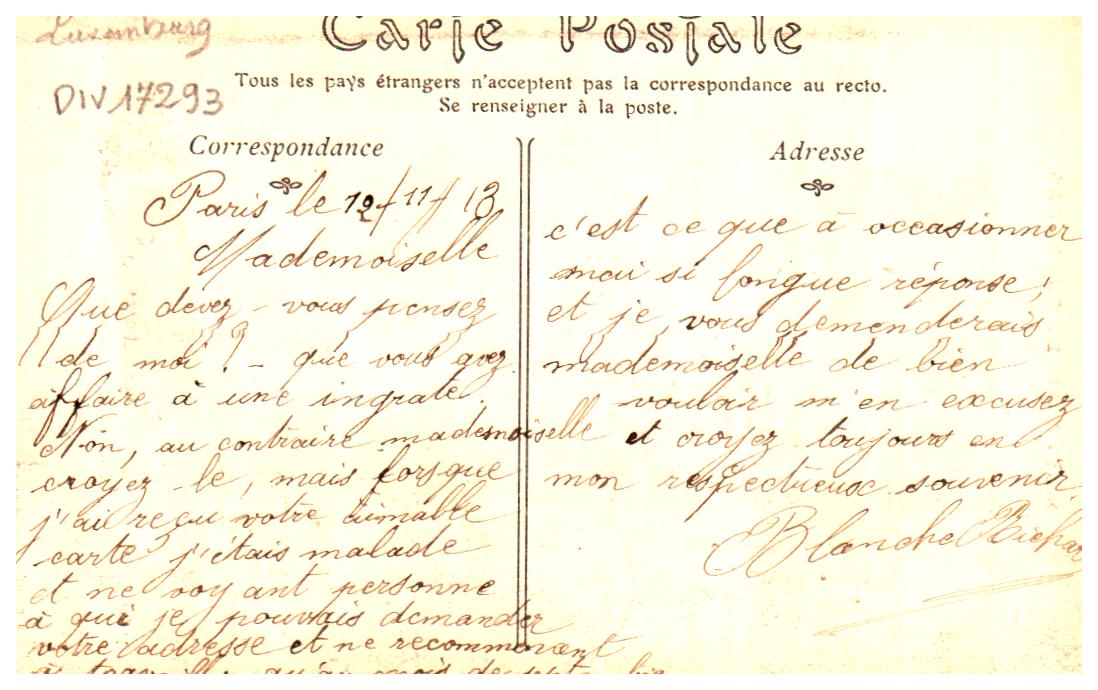 Luxemburg
DIV 17293
Carte Postale
Tous les pays étrangers n'acceptent pas la correspondance au recto.
Se renseigner à la poste.
Correspondance
Paris le 12/11/13
Mademoiselle
Que devez-vous pensez
de moi ? - que vous avez
affaire à une ingrate.
Non, au contraire mademoiselle
croyez-le, mais lorsque
j'ai reçu votre aimable
carte j'étais malade
et ne voyant personne
à qui je pouvais demander
votre adresse et ne recommencent
qu'au mois de
Adresse
c'est ce que à occasionner
mai si longue réponse;
et je vous demenderais
mademoiselle de bien
vouloir m'en excusez
et croyez toujours en
mon respectueux souvenir.
Blanche